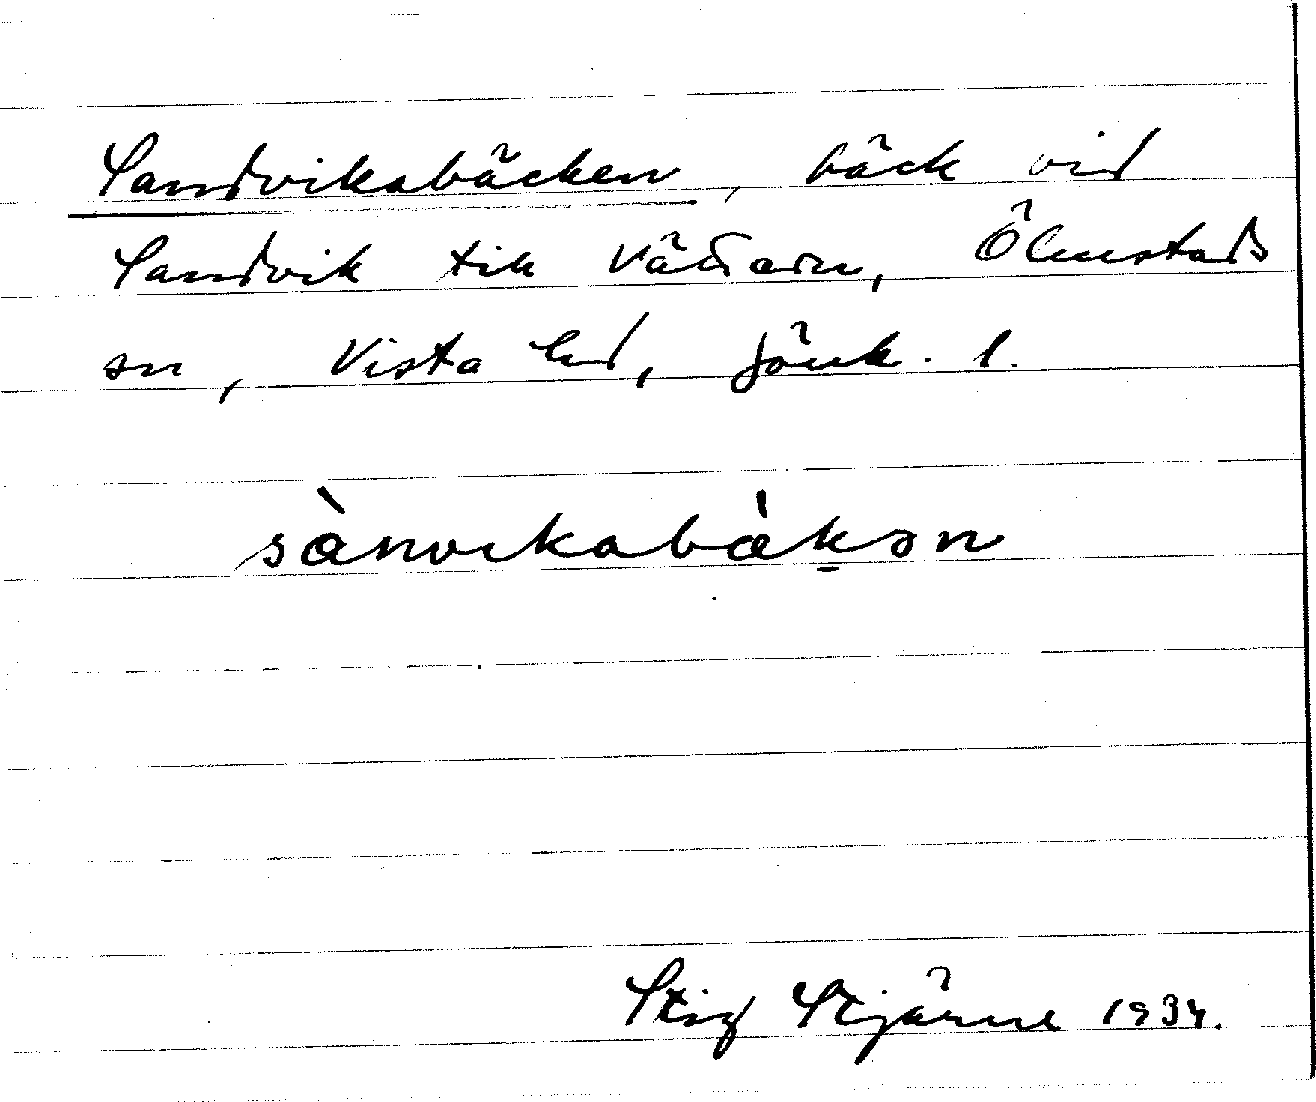 Sandvikabäcken, bäck vid
Sandvik till Vättern, Ölmstads
sn, Vista hd, Jönk. l.
sànvikabàkən
Stig Stjärne 1934.